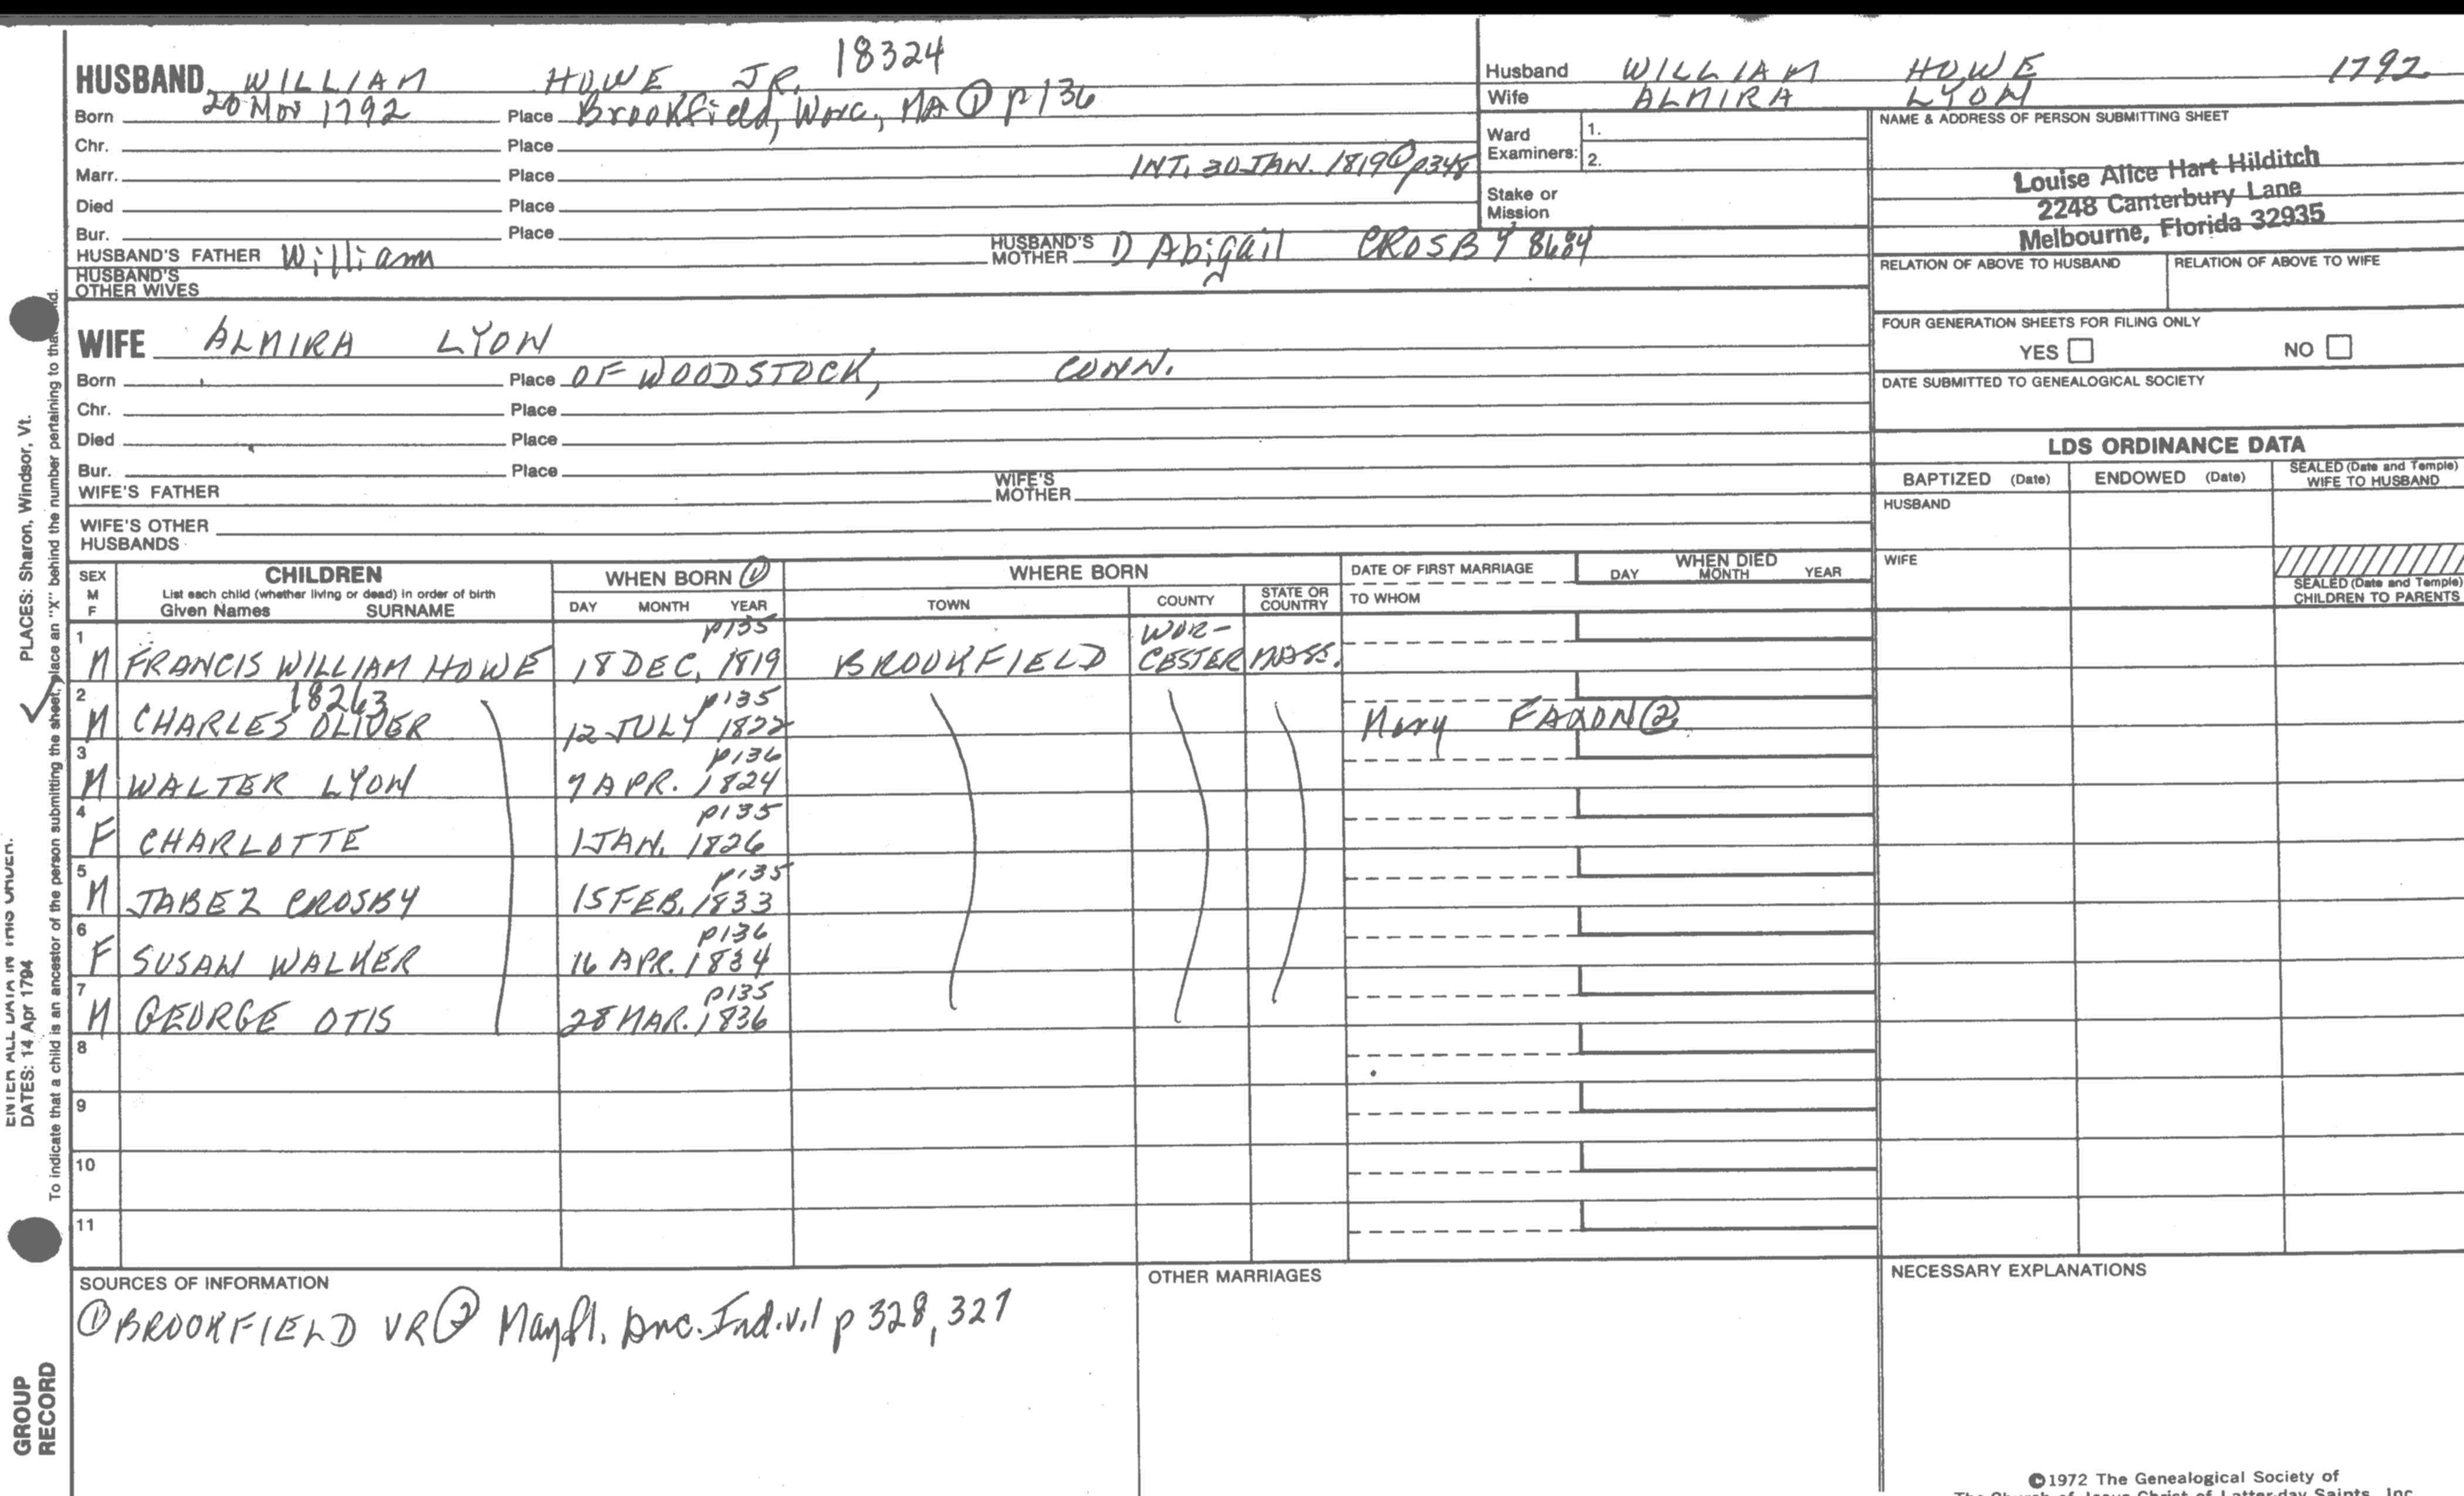 18324
HUSBAND WILLIAM HOWE JR.
Born 20 Nov 1792 Place Brookfield, Worc., MA ① p136
Chr. Place
Marr. Place INT. 30 JAN. 1819 ① p348
Died Place
Bur. Place
HUSBAND'S FATHER William HUSBAND'S MOTHER D Abigail CROSBY 8684
HUSBAND'S OTHER WIVES
WIFE ALMIRA LYON
Born Place OF WOODSTOCK, CONN.
Chr. Place
Died Place
Bur. Place
WIFE'S FATHER WIFE'S MOTHER
WIFE'S OTHER HUSBANDS
Husband WILLIAM HOWE 1792
Wife ALMIRA LYON
Ward Examiners: 1.
2.
Stake or Mission
NAME & ADDRESS OF PERSON SUBMITTING SHEET
Louise Alice Hart Hilditch
2248 Canterbury Lane
Melbourne, Florida 32935
RELATION OF ABOVE TO HUSBAND RELATION OF ABOVE TO WIFE
FOUR GENERATION SHEETS FOR FILING ONLY
YES NO
DATE SUBMITTED TO GENEALOGICAL SOCIETY
LDS ORDINANCE DATA
BAPTIZED (Date) ENDOWED (Date) SEALED (Date and Temple) WIFE TO HUSBAND
HUSBAND
WIFE
SEALED (Date and Temple) CHILDREN TO PARENTS
SEX M F CHILDREN WHEN BORN ① WHERE BORN DATE OF FIRST MARRIAGE WHEN DIED
List each child (whether living or dead) in order of birth
Given Names SURNAME DAY MONTH YEAR TOWN COUNTY STATE OR COUNTRY TO WHOM DAY MONTH YEAR
1 p135 WOR-
M FRANCIS WILLIAM HOWE 18 DEC. 1819 BROOKFIELD CESTER MASS.
2 18263 p135
M CHARLES OLIVER 12 JULY 1822 Mary FAXON ②
3 p136
M WALTER LYON 7 APR. 1824
4 p135
F CHARLOTTE 1 JAN. 1826
5 p135
M JABEZ CROSBY 15 FEB. 1833
6 p136
F SUSAN WALKER 16 APR. 1834
7 p135
M GEORGE OTIS 28 MAR. 1836
8
9
10
11
SOURCES OF INFORMATION
① BROOKFIELD VR ② Mayfl. Ind. v.1 p 328, 327
OTHER MARRIAGES
NECESSARY EXPLANATIONS
©1972 The Genealogical Society of
The Church of Jesus Christ of Latter-day Saints, Inc.
PLACES: Sharon, Windsor, Vt.
ENTER ALL DATA IN THIS ORDER:
DATES: 14 Apr 1794
To indicate that a child is an ancestor of the person submitting the sheet, place an "X" behind the number pertaining to that
GROUP
RECORD